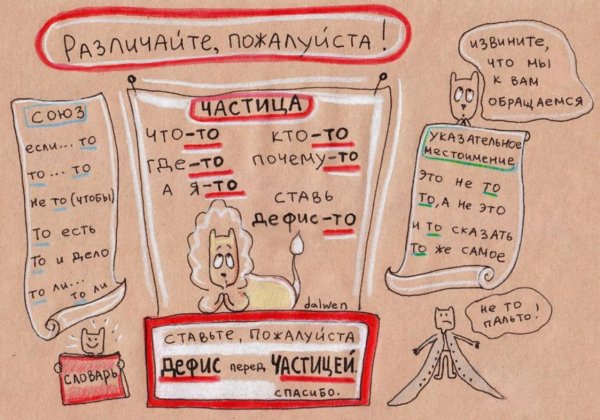 Различайте, пожалуйста!
СОЮЗ
если... то
то ... то
не то (чтобы)
то есть
то и дело
то ли... то ли
СЛОВАРЬ
ЧАСТИЦА
ЧТО-ТО
КТО-ТО
ГДЕ-ТО
ПОЧЕМУ-ТО
А Я-ТО
СТАВЬ
ДЕФИС-ТО
dalwen
СТАВЬТЕ, ПОЖАЛУЙСТА
ДЕФИС перед ЧАСТИЦЕЙ.
СПАСИБО.
ИЗВИНИТЕ,
ЧТО МЫ
К ВАМ
ОБРАЩАЕМСЯ
УКАЗАТЕЛЬНОЕ
МЕСТОИМЕНИЕ
ЭТО НЕ ТО
ТО, А НЕ ЭТО
И ТО СКАЗАТЬ
ТО ЖЕ САМОЕ
НЕ ТО
ПАЛЬТО!